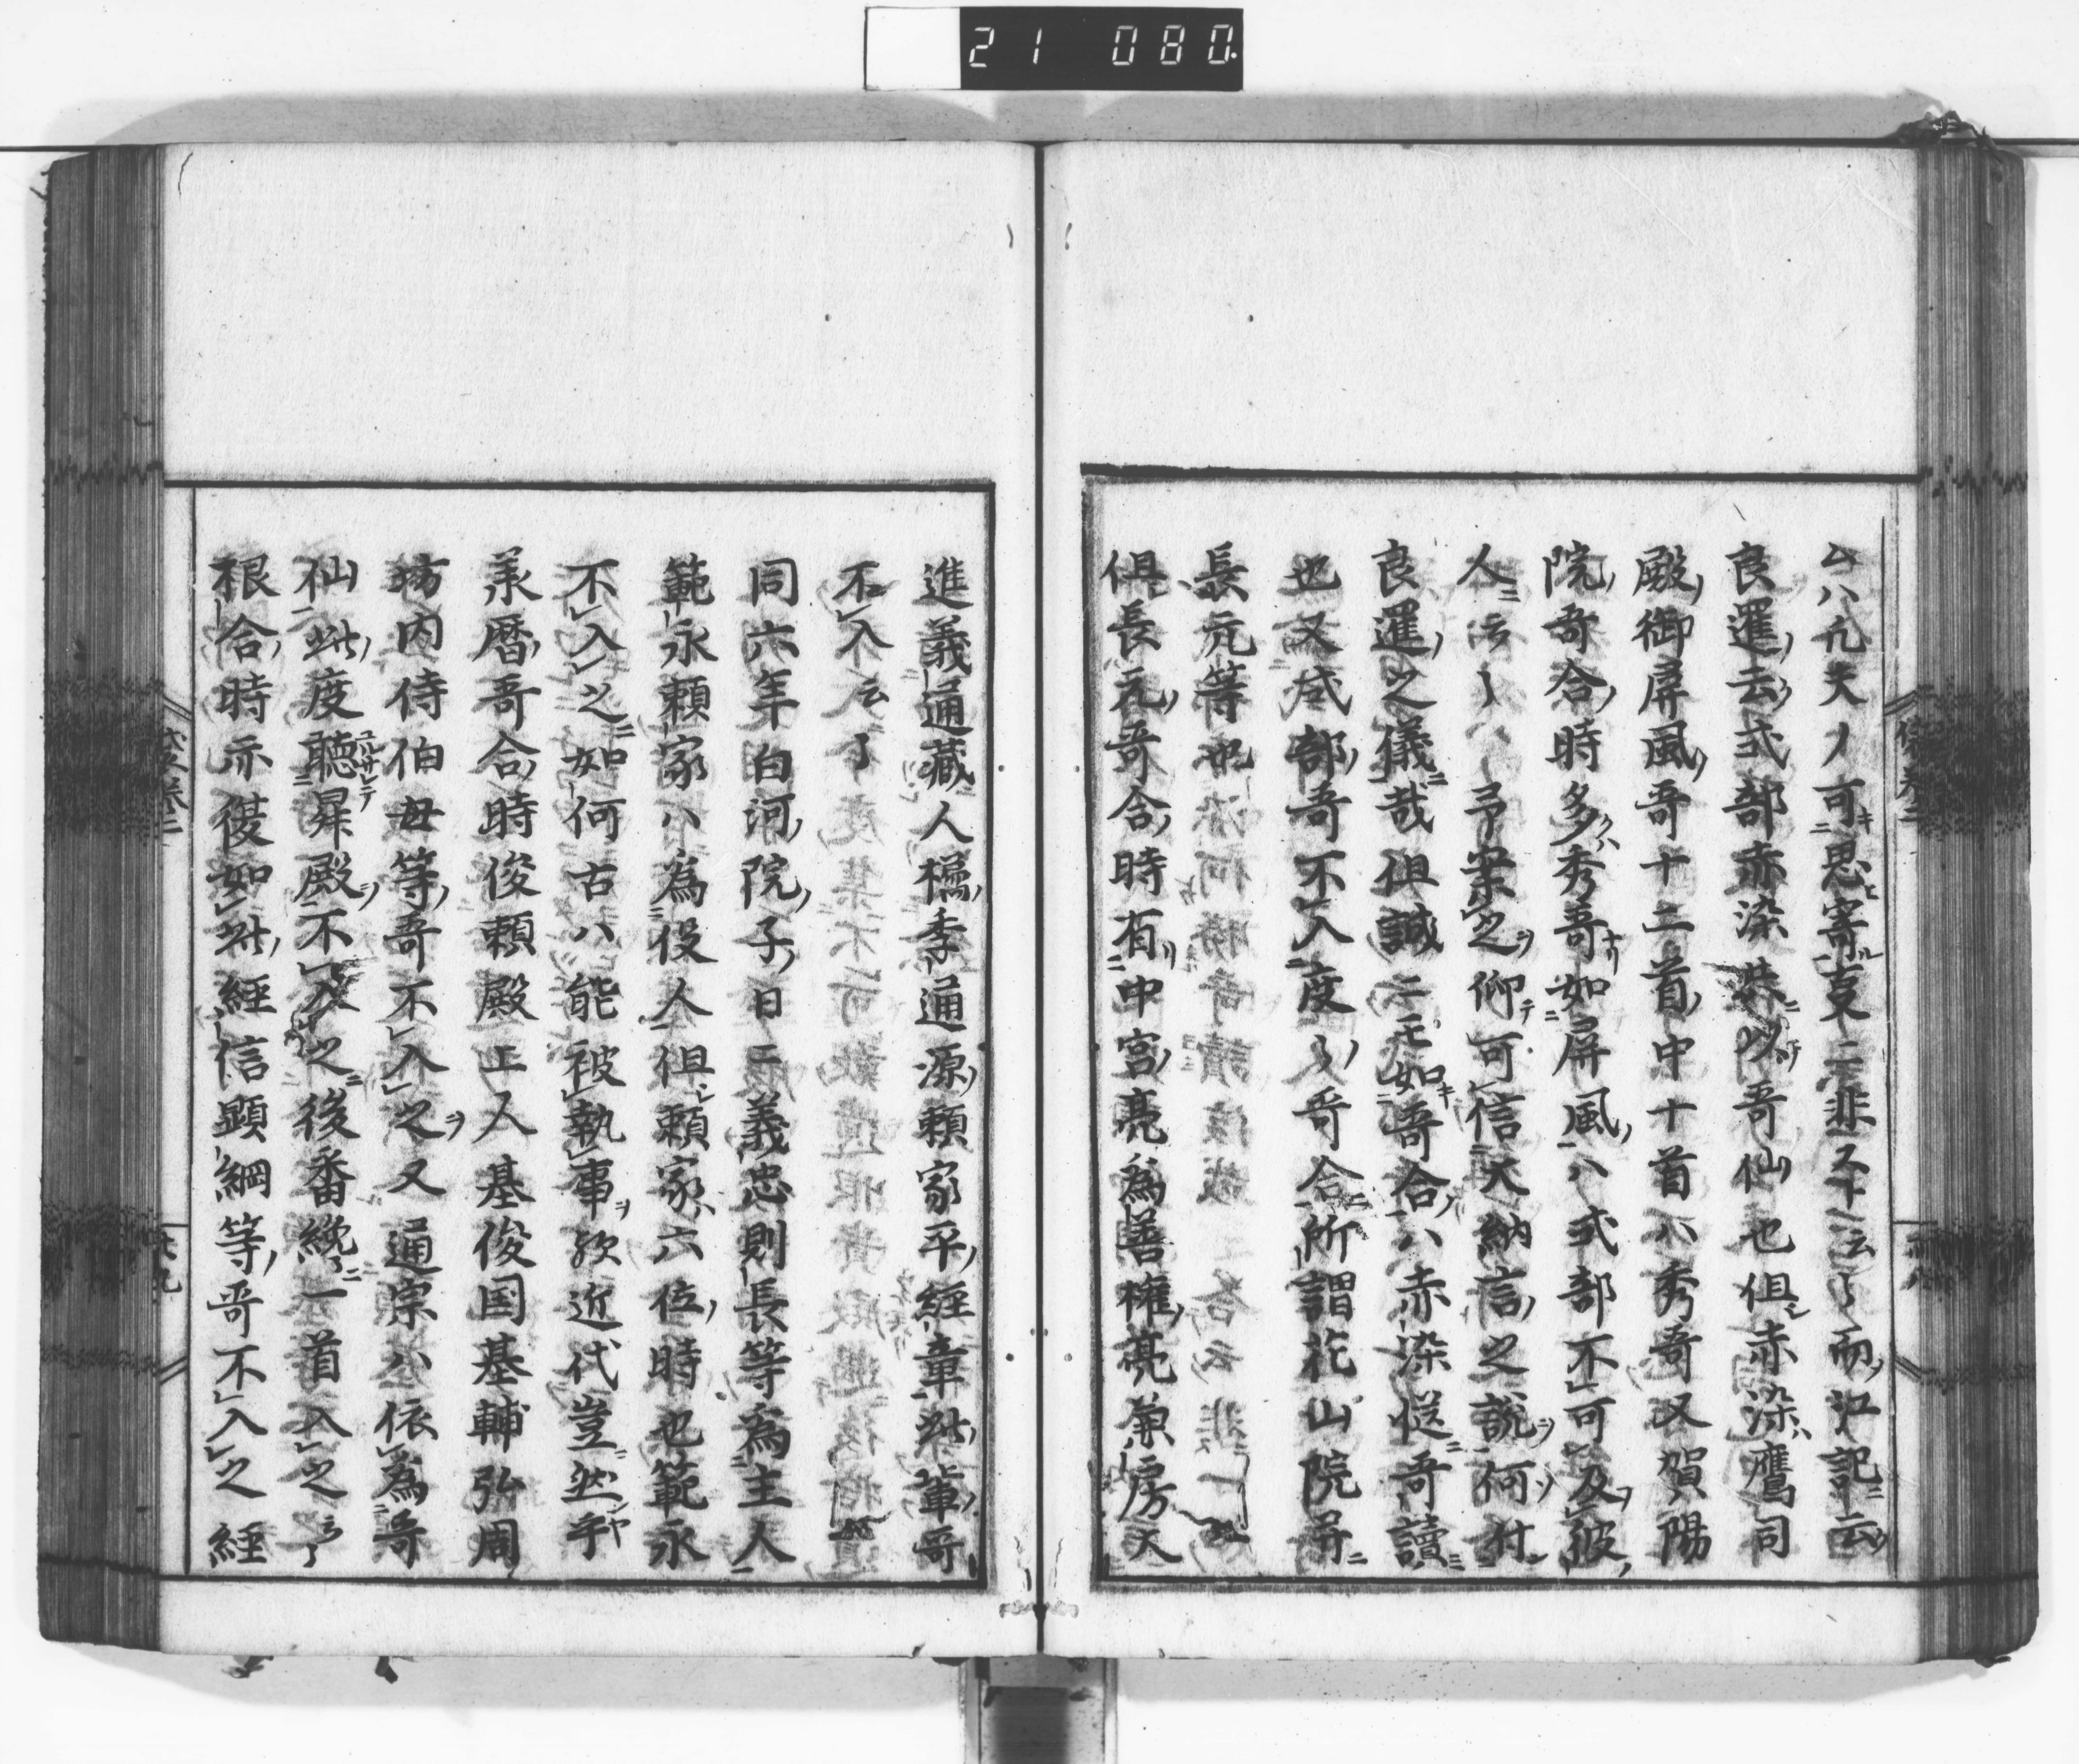 21 080
ムハ凡夫ノ可キ思ヒ寄ル支ニ非スト云々而江記ニ云
良暹云式部赤染共ニ以テ哥仙也但シ赤染ハ鷹司
殿ノ御屏風ノ哥十二首ノ中十首ハ秀哥又賀陽
院ノ哥合ノ時多クハ秀哥ナリ如屏風ノハ式部不可及彼ノ
人ニ云々予案之ヲ仰テ可信大納言之説ヲ何ソ付ン
良暹之儀ニ哉但誠ニモ如キ哥合ノハ赤染從哥讀ニ
也又式部ノ哥不入度々ノ哥合ニ所謂花山院并ニ
長元等也
但長元ノ哥合ノ時有リ中宮ノ亮為善權ノ亮兼房大
進義通藏人橘季通源ノ頼家平ノ經章此ノ輩ノ哥
不入云々
同六年白河ノ院ノ子ノ日ニ義忠則長等為主人
範永頼家ハ為役人但頼家ハ六位ノ時也範永
不入之ニ如何古ハ能被執事ヲ歟近代豈ニ然ンヤ乎
承暦ノ哥合ノ時俊頼殿上人基俊国基輔弘周
坊内侍伯母等ノ哥不入之ヲ又通宗ハ依為哥
仙此ノ度聴ユルサレテ昇殿ヲ不入之ニ後番纔ニ一首入之云々
根合ノ時示従如此ノ經信顕綱等ノ哥不入之經